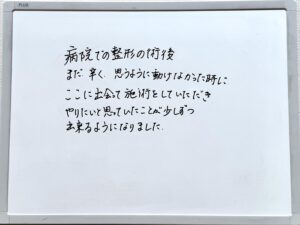 PLUS
病院での整形の術後
まだ辛く、思うように動けなかった時に
ここに出会って施術をしていただき
やりたいと思っていたことが少しずつ
出来るようになりました.